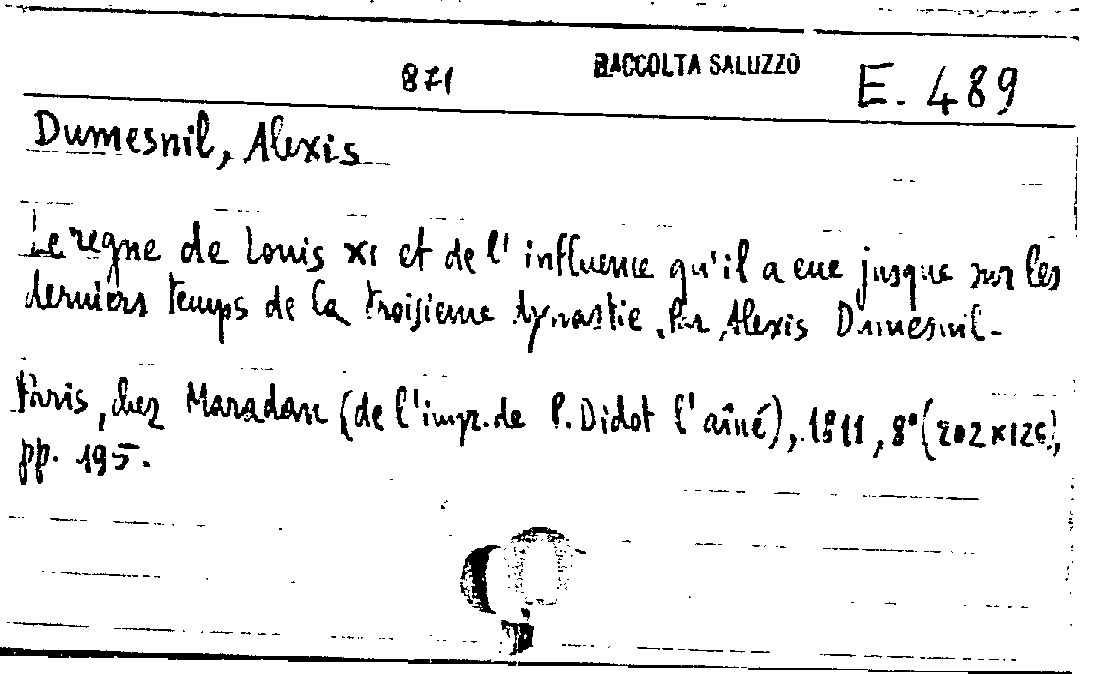 871 RACCOLTA SALUZZO E. 489
Dumesnil, Alexis
Le regne de Louis XI et de l'influence qu'il a eue jusque sur les
derniers temps de la troisieme dynastie. Par Alexis Dumesnil.
Paris, chez Maradan (de l'impr. de P. Didot l'aîné), 1811, 8° (202x126),
pp. 195.